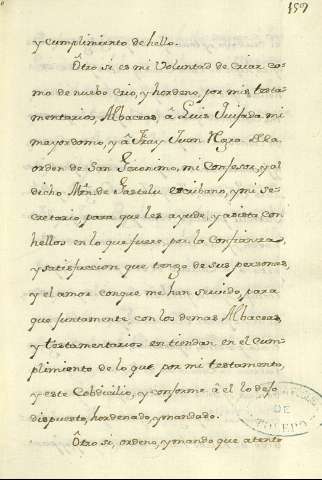 159
y cumplimiento de hello.
Otro si es mi Voluntad de criar, co-
mo de nuebo crio, y hordeno, por mis testa-
mentarios, Albaceas, â Luis Quijada, mi
mayordomo, y â Fray Juan Regra. de la
orden de San Geronimo, mi Confesor, y al
dicho Mñ. de Gastelu escribano, y mi se-
cretario, para que les ayude, y asista con
hellos en lo que fuere, por la Confianza,
y satisfaccion que tengo de sus personas,
y el amor conque me han servido, para
que juntamente con los demas Albaceas,
y testamentarios entiendan en el cum-
plimiento de lo que por mi testamento,
y este Cobdicilio, y conforme â el lo dejo
dispuesto, hordenado, y mandado.
Otro si, ordeno, y mando que atento
DE
TOLEDO